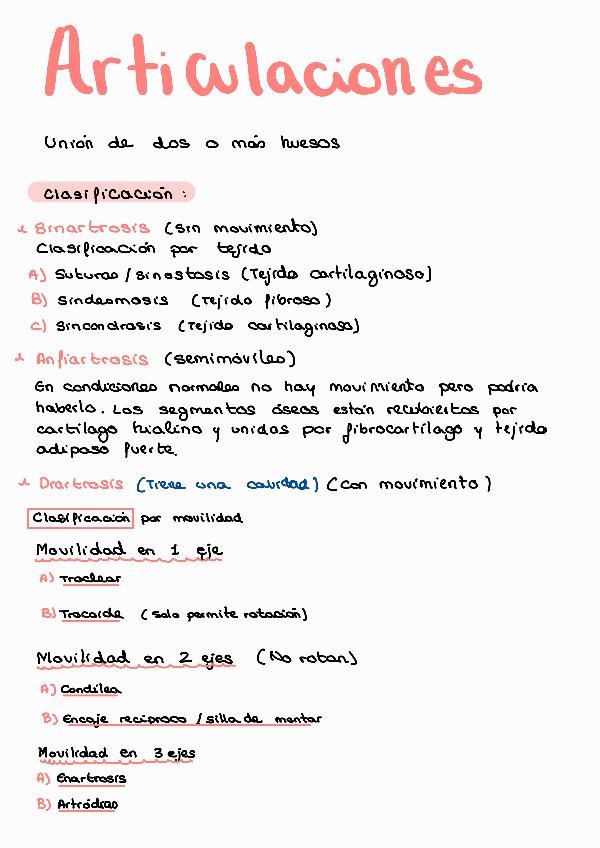 Articulaciones
Unión de dos o más huesos
Clasificación :
Sinartrosis (sin movimiento)
Clasificación por tejido
A) Suturas / sinostosis (Tejido cartilaginoso)
B) Sindesmosis (Tejido fibroso)
C) Sincondrosis (Tejido cartilaginoso)
Anfiartrosis (semimóviles)
En condiciones normales no hay movimiento pero podría
haberlo. Los segmentos óseas están recubiertas por
cartílago hialino y unidas por fibrocartílago y tejido
adiposo fuerte.
Diartrosis (Tiene una cavidad) (con movimiento)
Clasificación por movilidad
Movilidad en 1 eje
A) Troclear
B) Trocoide (solo permite rotación)
Movilidad en 2 ejes (No rotan)
A) Condílea
B) Encaje recíproco / silla de montar
Movilidad en 3 ejes
A) Enartrosis
B) Artródias